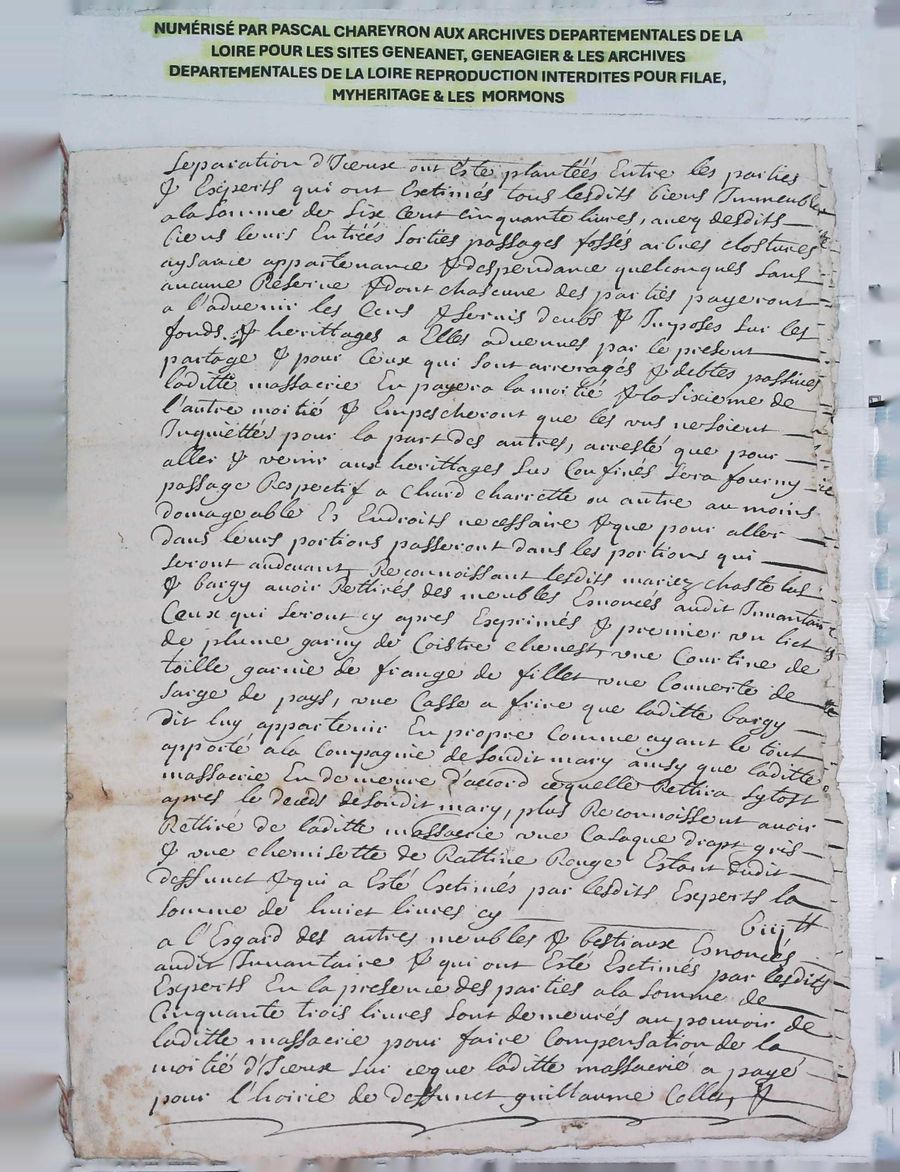 NUMÉRISÉ PAR PASCAL CHAREYRON AUX ARCHIVES DEPARTEMENTALES DE LA
LOIRE POUR LES SITES GENEANET, GENEAGIER & LES ARCHIVES
DEPARTEMENTALES DE LA LOIRE REPRODUCTION INTERDITES POUR FILAE,
MYHERITAGE & LES MORMONS
Separation d'Iceux ont Esté plantéés Entre les parties
& Experts qui ont Extimés tous lesdits biens Immeubles
a la somme de six Cent cinquante livres, avec desdits
biens leurs Entréés sorties passages fossés arbres clostures
aysance appartenance & despendance quelconques sans
aucune Réserve & dont chascune des parties payeront
a l'advenir les Cens & servis deubs & Imposés sur les
fonds & herittages a Elles advenues par le present
partage & pour Ceux qui sont arreragés & debtes passives
laditte massacrie En payera la moitié & la sixieme de
l'autre moitié & Empescheront que les uns ne soient
Inquiettés pour la part des autres, arresté que pour
aller & venir aux herittages sus Confinés sera fourny
passage Respectif a Chard charette ou autre au moins
domageable Es Endroits necessaire & que pour aller
dans leurs portions passeront dans les portions qui
seront audevant, Reconnoissant lesdits mariez chastelus
& bargy avoir Rettirés des meubles Enoncés audit Inventaire
Ceux qui seront cy apres Exprimés & premier un lict
de plume garny de Coistre chevest, une Courtine de
toille garnie de frange de fillet une Couverte de
sarge de pays, une Casse a frire que laditte bargy
dit luy appartenir En propre Comme ayant le tout
apporté a la Compagnie de soudit mary ainsy que laditte
massacrie En demeure d'accord cequelle Rettira sytost
apres le deceds de soudit mary, plus Reconnoissent avoir
Rettiré de laditte massacrie une Casaque drapt gris
& une chemisette de Rattine Rouge Estant dudit
deffunct & qui a Esté Extimés par lesdits Experts la
somme de huict livres cy viij ₶
a l'Esgard des autres meubles & bestiaux Esnoncés
audit Inventaire & qui ont Esté Extimés par lesdits
Experts En la presence des parties a la somme de
Cinquante trois livres sont demeurés au pouvoir de
laditte massacrie pour faire Compensation de la
moitié d'Iceux sur ceque laditte massacrie a payé
pour l'hoirie de deffunct guilhaume Collet, &